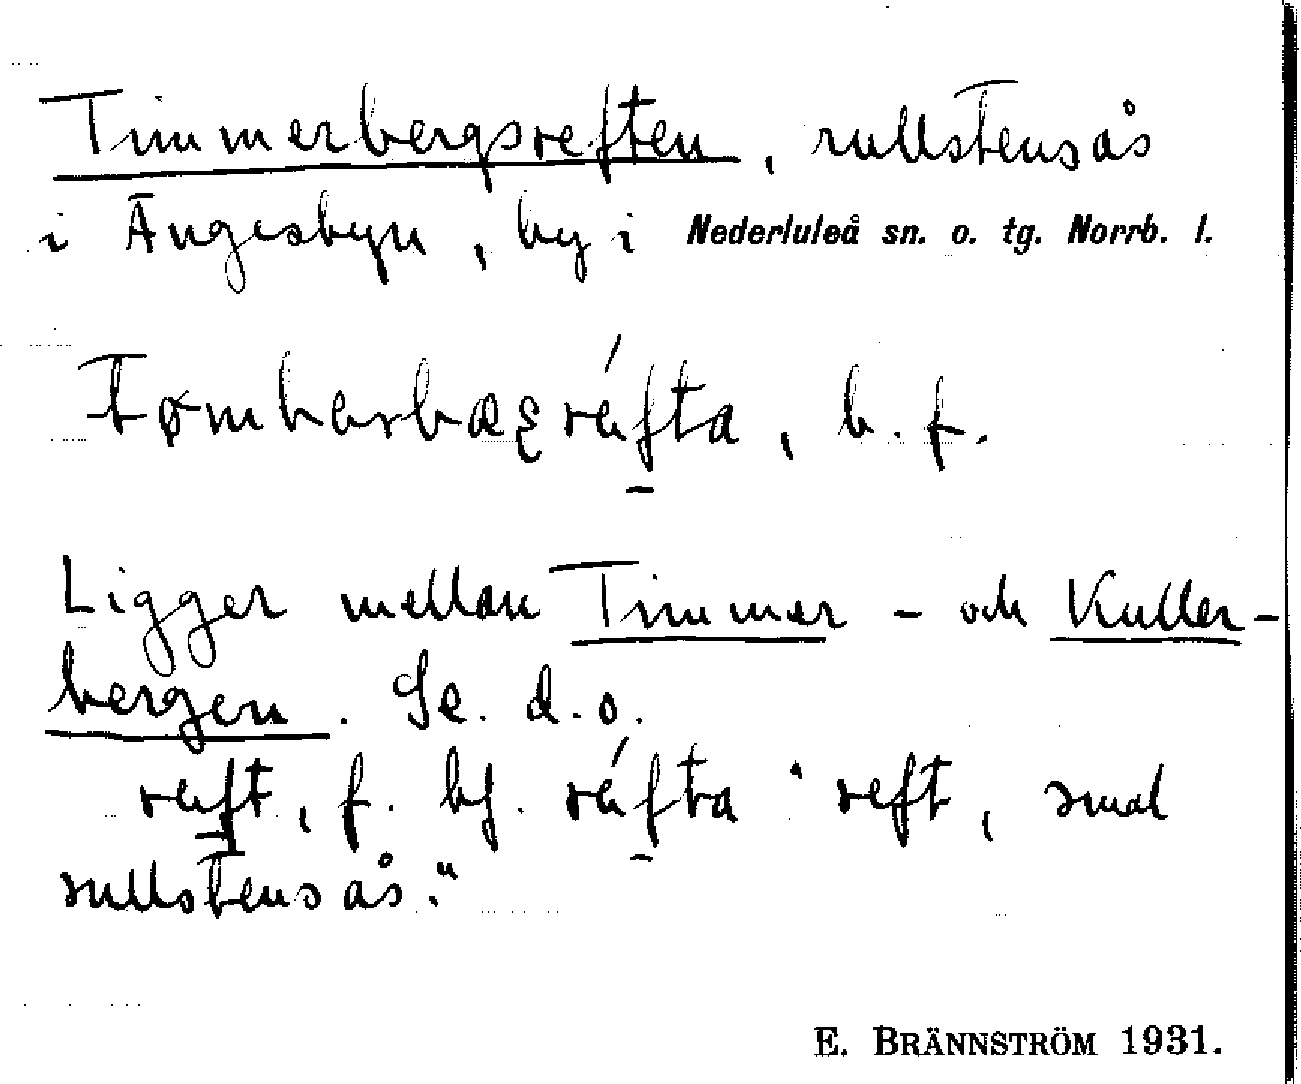 Timmerbergsreften, rullstensås
i Ängesbyn, by i Nederluleå sn. o. tg. Norrb. l.
b. f.
Ligger mellan Timmer- och Kuller-
bergen. Se. d.o.
f. bf. "reft, smal
rullstensås."
E. BRÄNNSTRÖM 1931.